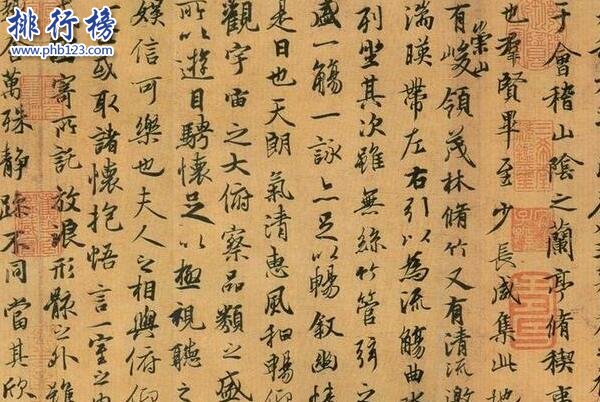 排行榜
www.phb123.com
于會稽山陰之蘭亭脩稧事
也羣賢畢至少長咸集此地
有崇山峻領茂林脩竹又有清流激
湍暎帶左右引以為流觴曲水
列坐其次雖無絲竹管弦之
盛一觴一詠亦足以暢叙幽情
是日也天朗氣清惠風和暢仰
觀宇宙之大俯察品類之盛
所以遊目騁懷足以極視聽之
娛信可樂也夫人之相與俯仰
或取諸懷抱悟言一室之內
因寄所託放浪形骸之外雖
舍萬殊靜躁不同當其欣